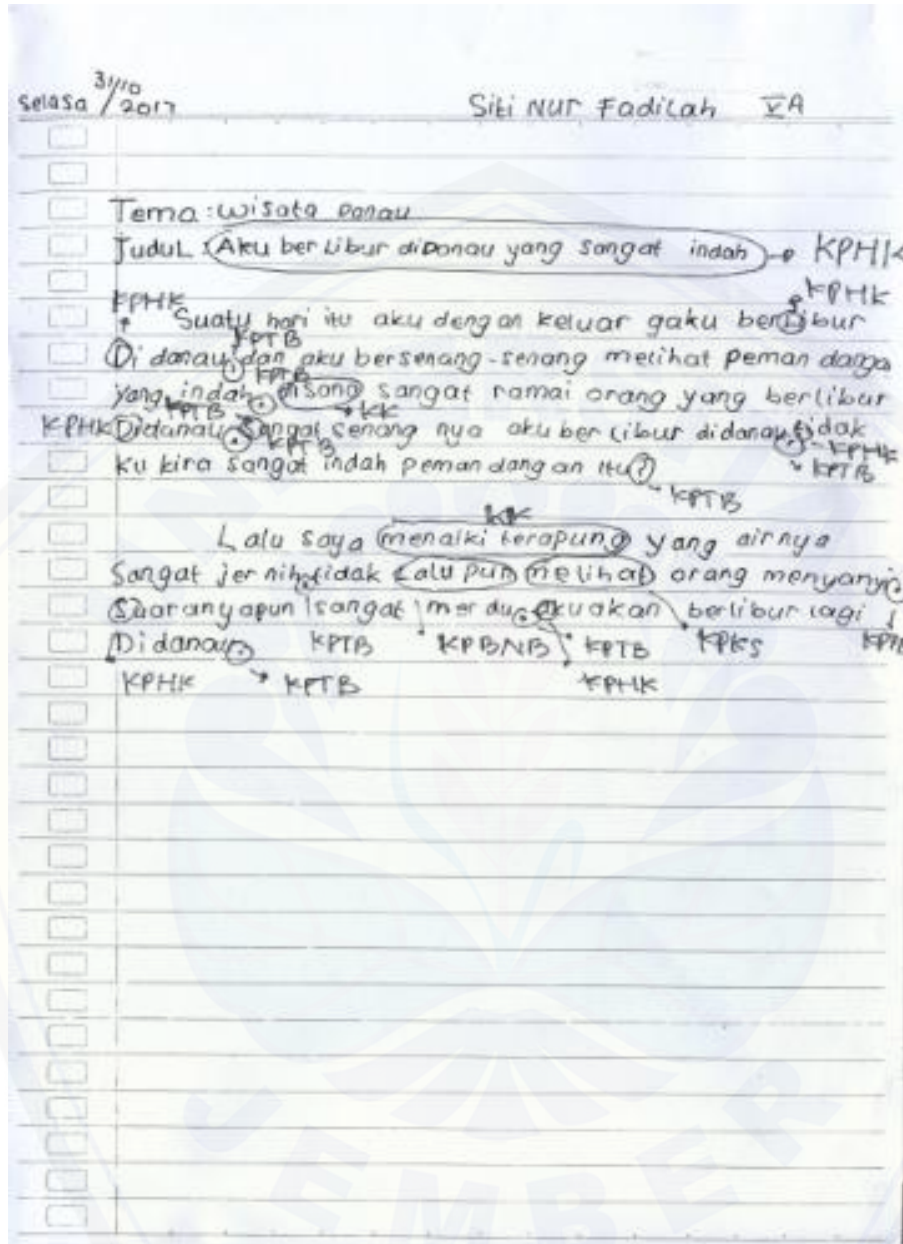 Selasa 31/10 2017 Siti Nur Fadilah VA
Tema : wisata Danau
Judul : Aku ber Libur diDanau yang sangat indah KPHK
KPHK KPHK
Suatu hari itu aku dengan keluar gaku berLibur
KPTB
Di danau dan aku bersenang-senang melihat peman danga
KPTB
yang indah . Disana sangat ramai orang yang berlibur
KPTB KK
KPHK Didanau . Sangat senang nya aku ber libur didanau . tidak
KPTB KPHK
ku kira sangat indah peman dang an itu ? KPTB
KPTB
KK
Lalu saya menaiki terapung yang airnya
Sangat jer nih . tidak Lalu pun melihat orang menyanyi .
Suaranyapun sangat merdu . aku akan berlibur lagi
Didanau . KPTB KPBNB KPTB KPKS KPTB
KPHK KPTB KPHK
JEMBER